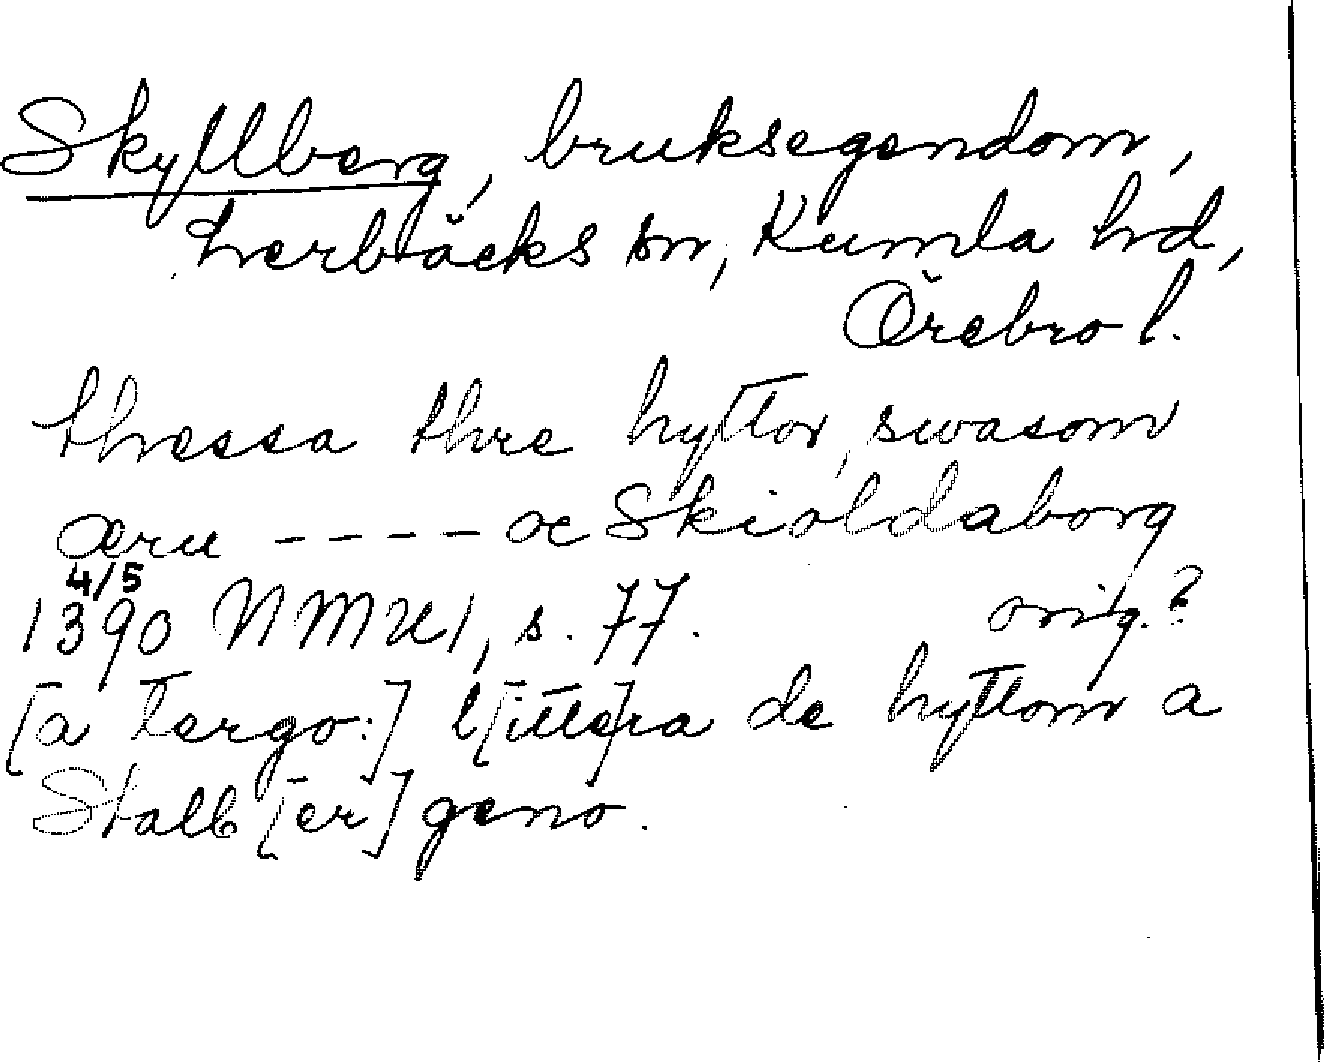 Skyllberg, bruksegendom,
Lerbäcks sn, Kumla hd,
Örebro l.
thessa thre hyttor, swasom
æru ---- oc Skioldaborg
4/5
1390 NMU 1, s. 77. orig.?
[a tergo:] l[itte]ra de hyttom a
Stalb[er]geno.